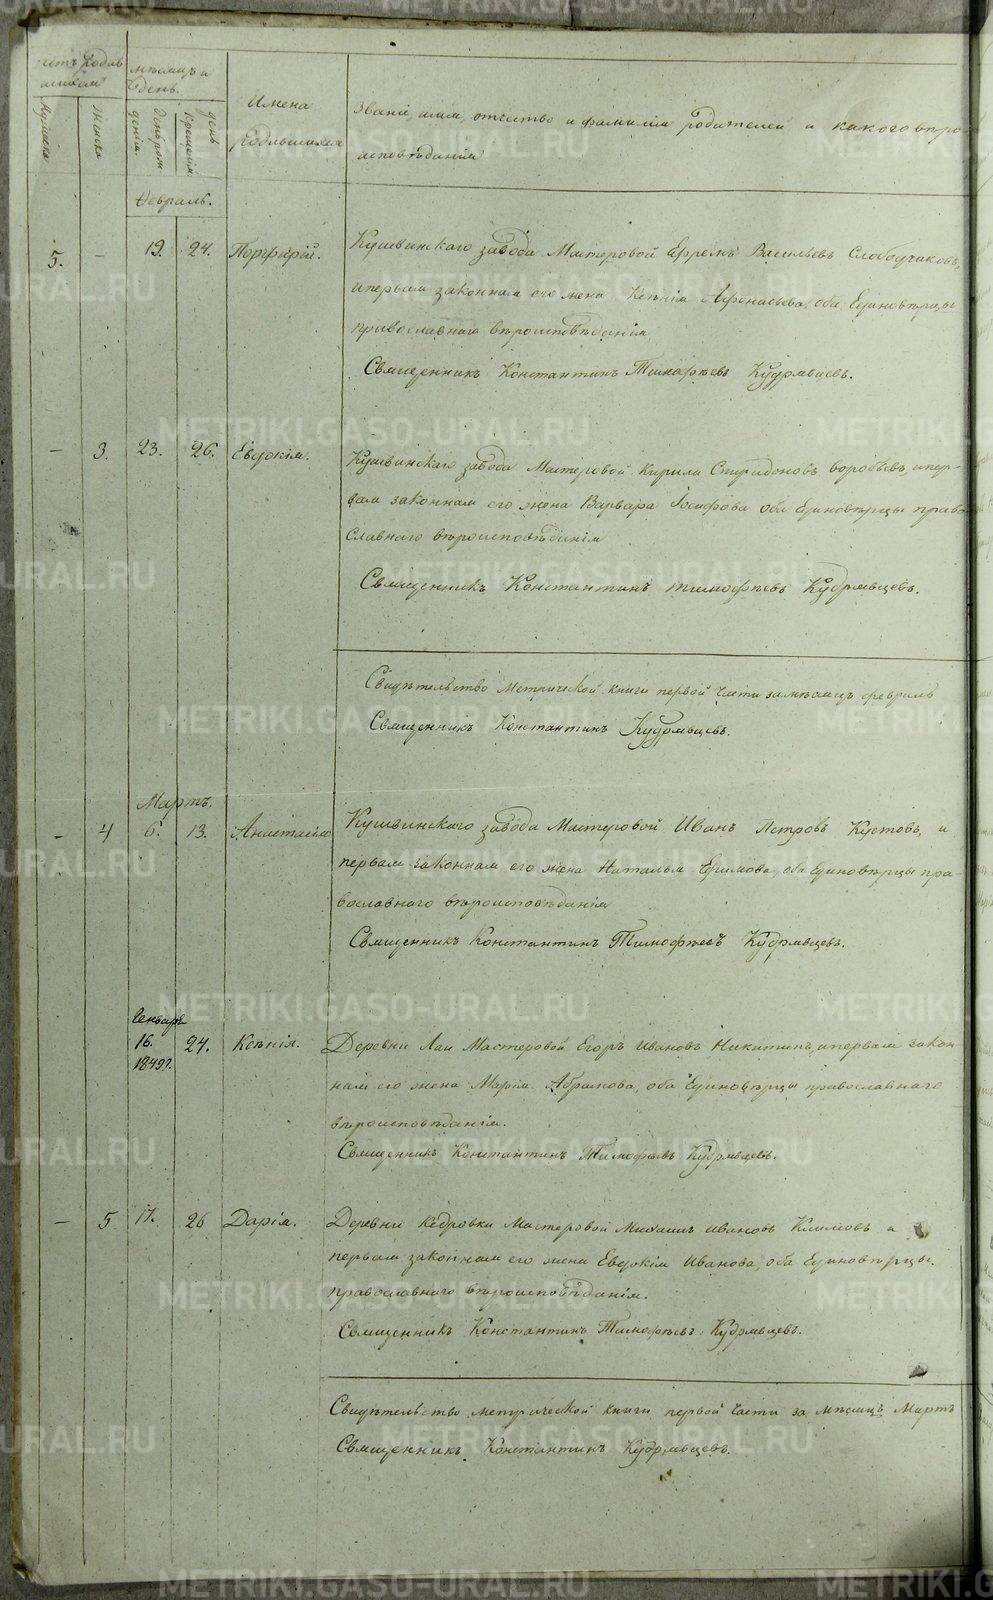 Счетъ Родив
шихся
Мѣсяцъ и
день.
Имена
Родившихся
Званіе, имя, отчество и фамилія родителей и какого вѣро
исповѣданія
Мужеска
Женска
рожденія
день
крещенія
Февраль.
5. — 19. 24. Порфирій. Кушвинскаго завода Мастеровой Ефремъ Васильевъ Слободчиковъ,
ипервая законная его жена Ксенія Афонасьева, оба Единовѣрцы
православнаго вѣроисповѣданія
Священникъ Константинъ Тимофѣевъ Кудрявцевъ.
— 3. 23. 26. Евдокія. Кушвинскаго завода Мастеровой Кирила Спиридоновъ воробьевъ, ипер-
вая законная его жена Варвара Іосифова оба Единовѣрцы право-
славнаго вѣроисповѣданія
Священникъ Константинъ тимофѣевъ Кудрявцевъ.
Свидѣтельство Метрической книги первой Части замѣсяцъ февраль
Священникъ Константинъ Кудрявцевъ.
Мартъ.
— 4 6. 13. Анастасія Кушвинскаго завода Мастеровой Иванъ Петровъ Кустовъ, и
первая законная его жена Наталья Ефимова, оба Единовѣрцы пра-
вославнаго вѣроисповѣданія
Священникъ Константинъ Тимофѣевъ Кудрявцевъ.
Генварь
16. 24. Ксенія. Деревни Лаи Мастеровой Егоръ Ивановъ Никитинъ, ипервая закон-
1849г.
ная его жена Марія Абрамова, оба Единовѣрцы православнаго
вѣроисповѣданія.
Священникъ Константинъ Тимофѣевъ Кудрявцевъ.
— 5 17. 26 Дарія. Деревни Кедровки Мастеровой Михаилъ Ивановъ Климовъ и
первая законная его жена Евдокія Иванова, оба Единовѣрцы.
православнаго вѣроисповѣданія.
Священникъ Константинъ Тимофѣевъ Кудрявцевъ.
Свидѣтельство, метрической книги первой Части за мѣсяцъ Мартъ
Священникъ Константинъ Кудрявцевъ.
METRIKI.GASO-URAL.RU